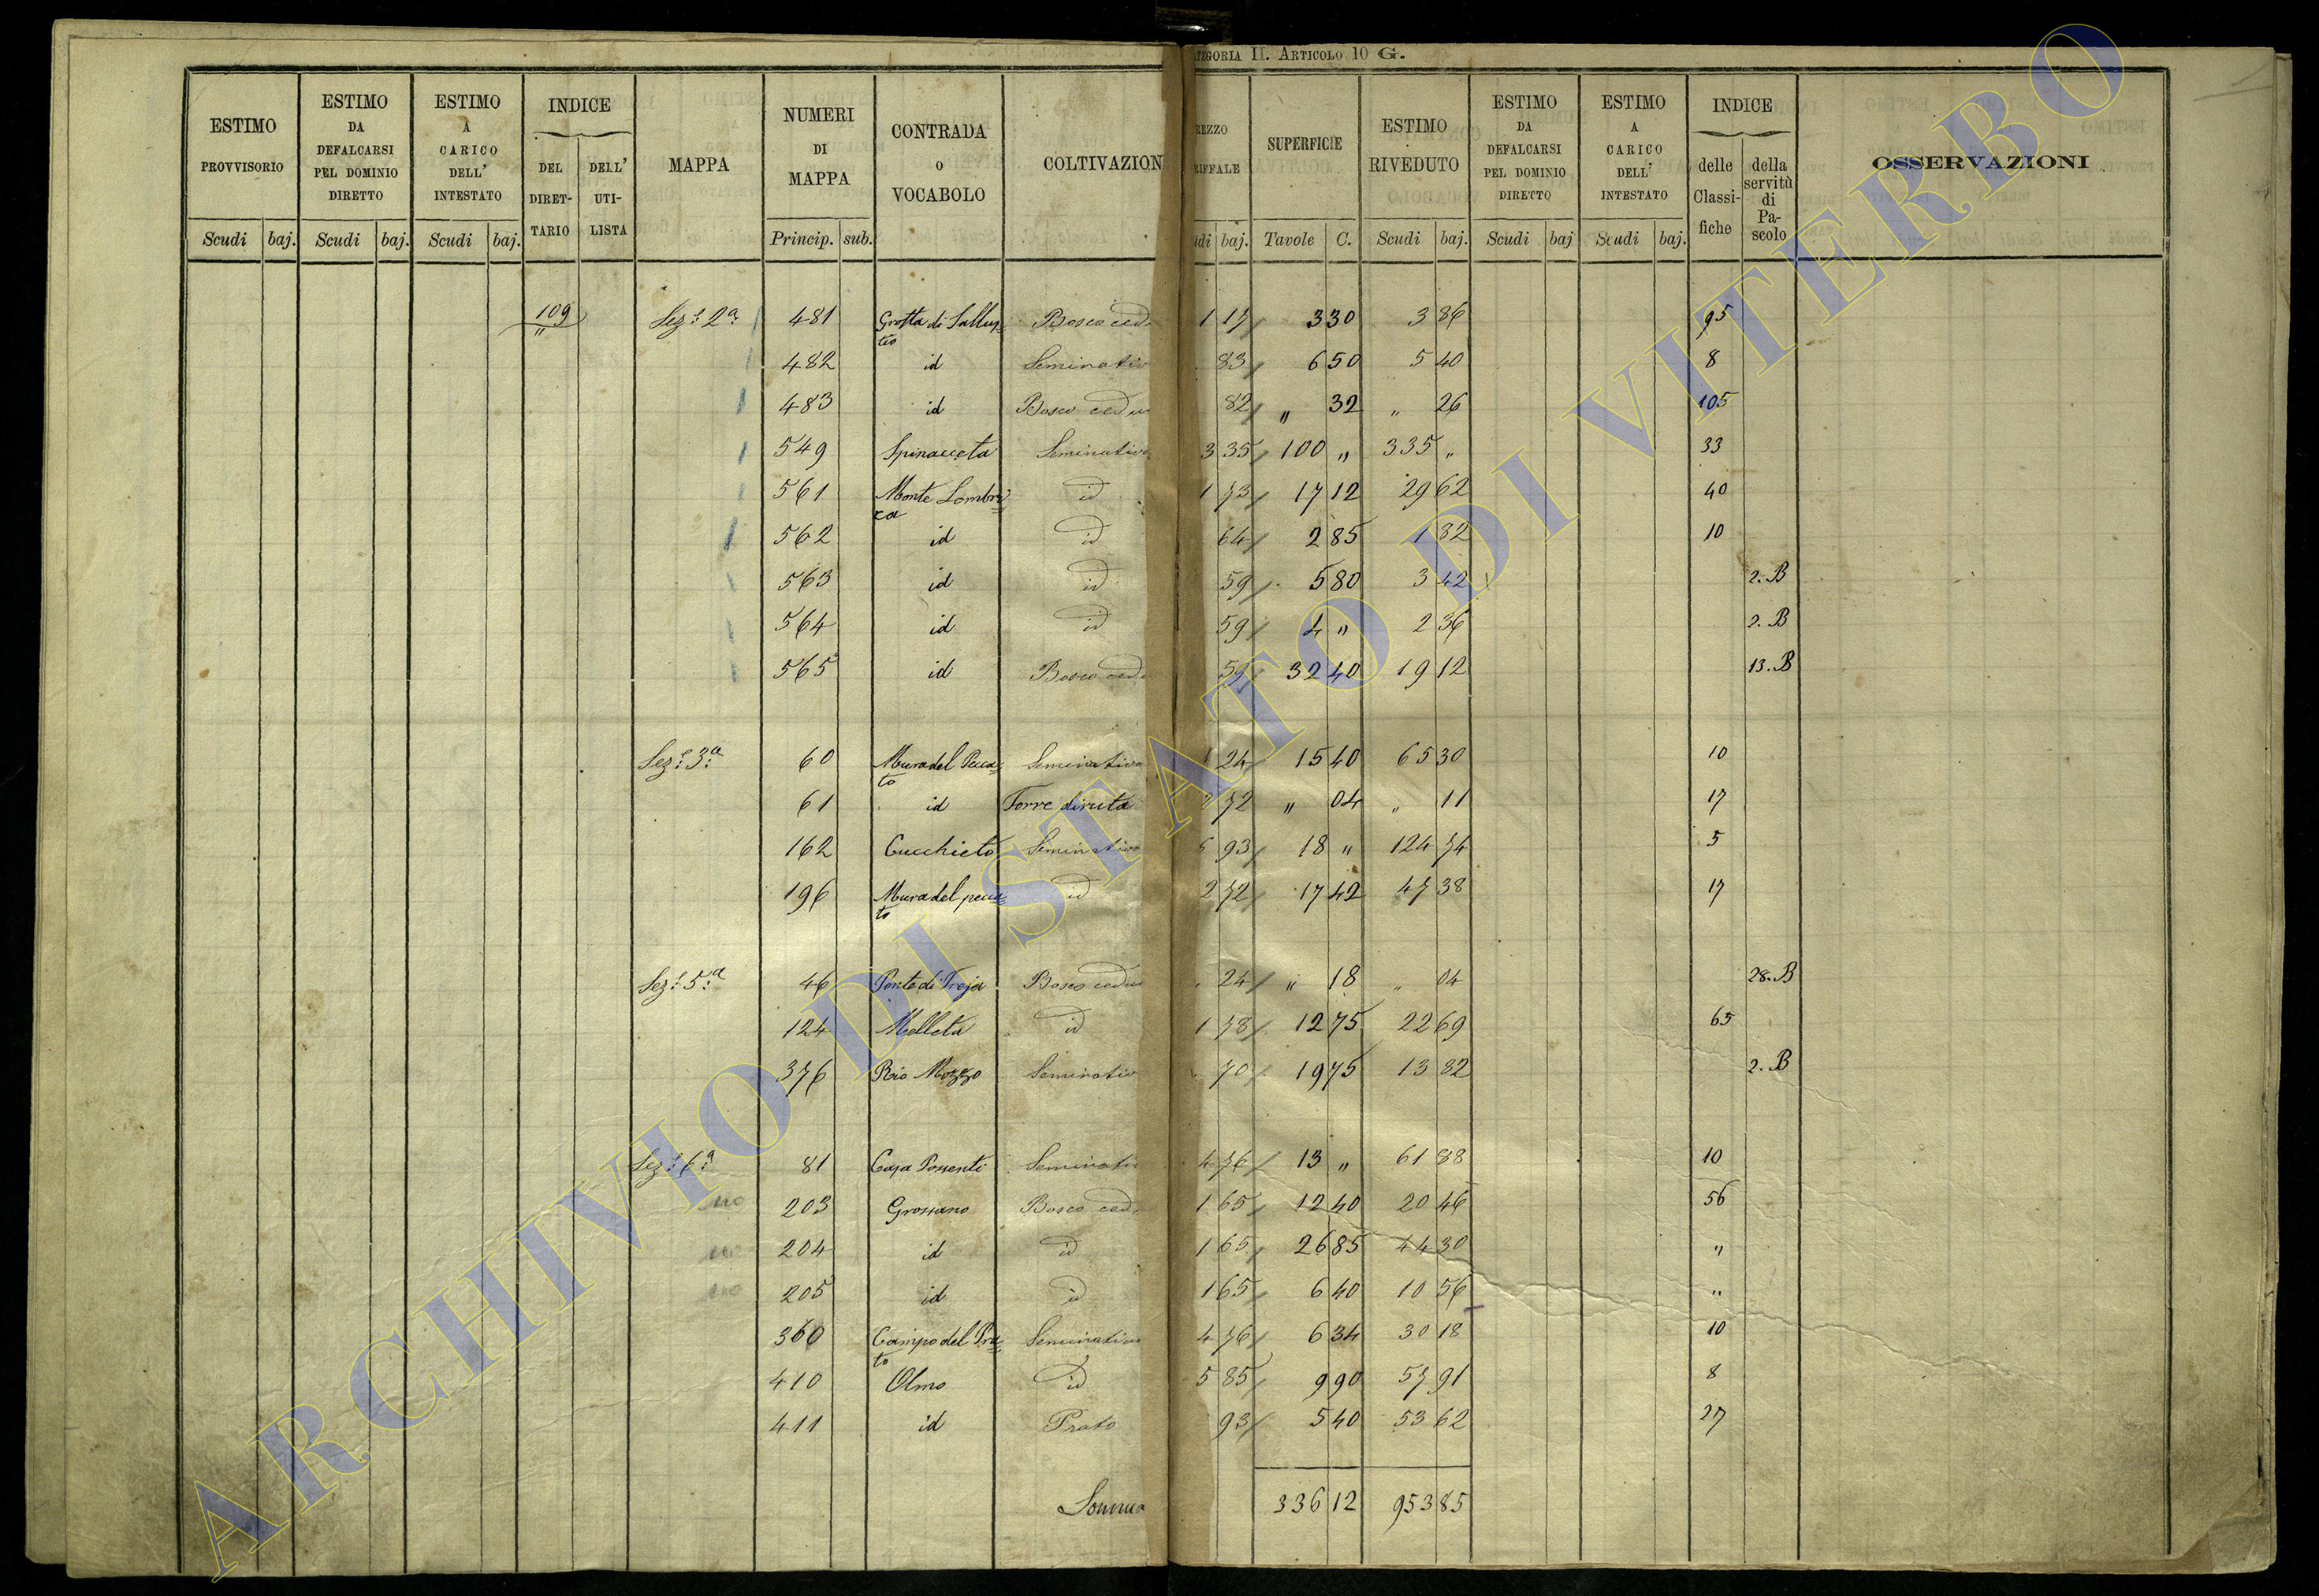 ATEGORIA II. ARTICOLO 10 G.
ESTIMO PROVVISORIO
ESTIMO DA DEFALCARSI PEL DOMINIO DIRETTO
ESTIMO A CARICO DELL' INTESTATO
INDICE
DEL DIRETTARIO
DELL' UTILISTA
MAPPA
NUMERI DI MAPPA
CONTRADA O VOCABOLO
COLTIVAZION
REZZO RIFFALE
SUPERFICIE
ESTIMO RIVEDUTO
ESTIMO DA DEFALCARSI PEL DOMINIO DIRETTO
ESTIMO A CARICO DELL' INTESTATO
INDICE
delle Classifiche
della servitù di Pascolo
OSSERVAZIONI
Scudi baj. Scudi baj. Scudi baj. Princip. sub. di baj. Tavole C. Scudi baj. Scudi baj Scudi baj.
109 Sez: 2a 481 Grotta di Sallus= tio Bosco ced 1 17 3 30 3 86 95
482 id Seminativ 83 6 50 5 40 8
483 id Bosco cedu 82 " 32 " 26 105
549 Spinacceta Seminativo 3 35 100 " 335 " 33
561 Monte Lombri= ca id 1 73 17 12 29 62 40
562 id id 64 2 85 1 82 10
563 id id 59 5 80 3 42 2. B
564 id id 59 4 " 2 36 2. B
565 id Bosco ced 59 32 40 19 12 13. B
Sez: 3a 60 Mura del Pecca= to Seminativo 24 15 40 65 30 10
61 id Torre diruta 2 72 " 04 " 11 17
162 Cucchieto Seminativo 6 93 18 " 124 74 5
196 Mura del pecca= to id 2 72 17 42 47 38 17
Sez: 5a 46 Ponte di Treja Bosco cedu 24 " 18 " 04 28. B
124 Melleta id 1 78 12 75 22 69 65
376 Rio Mozzo Seminativ 70 19 75 13 82 2. B
Sez: 6a 81 Casa Possenti Seminativ 4 76 13 " 61 88 10
no 203 Grossano Bosco ced 1 65 12 40 20 46 56
no 204 id id 1 65 26 85 44 30 "
no 205 id id 1 65 6 40 10 56 "
360 Campo del Pra= to Seminativo 4 76 6 34 30 18 10
410 Olmo id 5 85 9 90 57 91 8
411 id Prato 93 5 40 53 62 27
Somma 336 12 953 85
ARCHIVIO DI STATO DI VITERBO